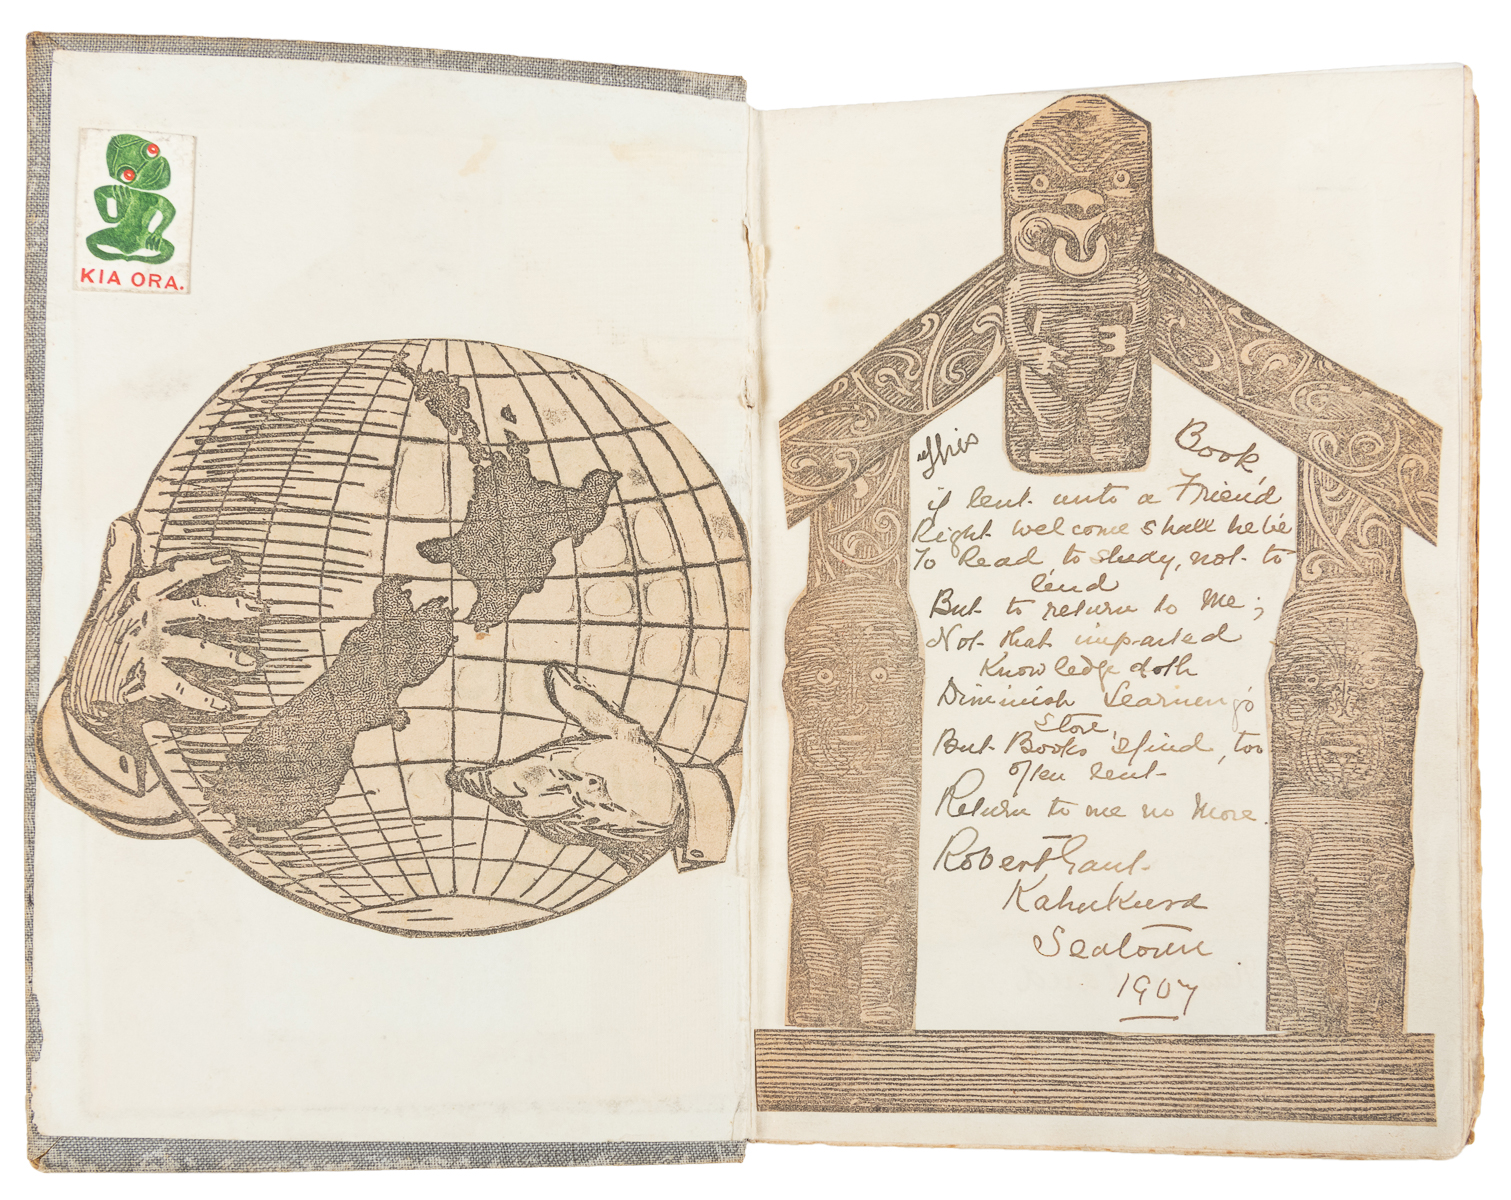 KIA ORA.
This Book
if lent unto a Friend
Right welcome shall he be
To Read, to study, not to
lend
But to return to Me;
Not that imparted
Knowledge doth
Diminish Learning's
Store,
But Books I find, too
often lent
Return to me no More.
Robert Gaut.
Kahukura
Seatoun.
1907